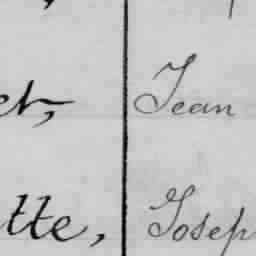 et, Jean
tte, Josep